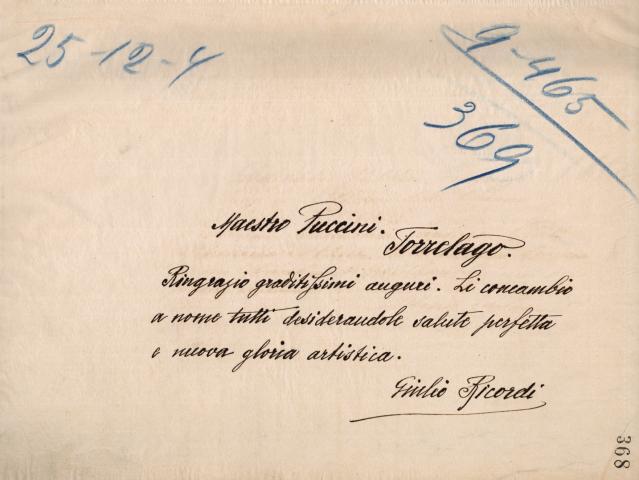 25-12-4
9-465
369
Maestro Puccini.
Torrelago.
Ringrazio graditissimi auguri. Li concambio
a nome tutti desiderandole salute perfetta
e nuova gloria artistica.
Giulio Ricordi
368